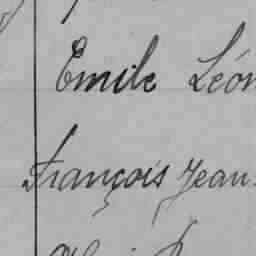 Emile Léon
François Jean